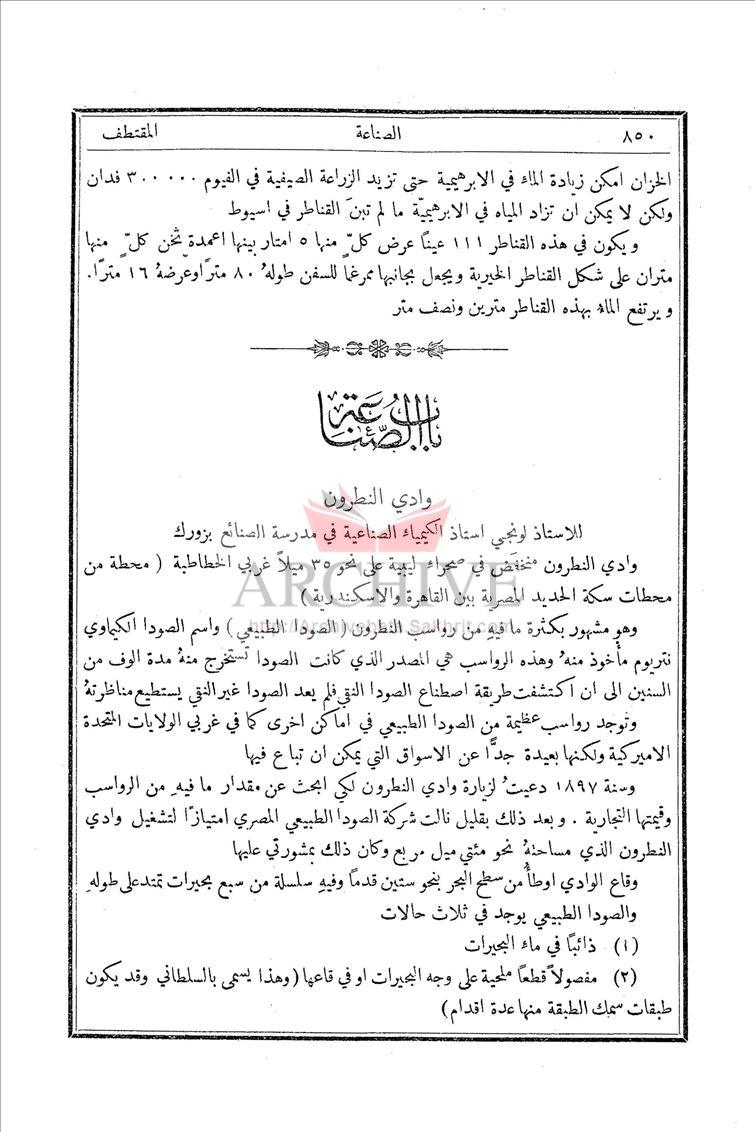 ٨٥٠ الصناعة المقتطف
الخزان امكن زيادة الماء في الابرهيمية حتى تزيد الزراعة الصيفية في الفيوم ٣٠٠ ٠٠٠ فدان
ولكن لا يمكن ان تزاد المياه في الابرهيميّة ما لم تبنَ القناطر في اسيوط
و يكون في هذه القناطر ١١١ عيناً عرض كلٍّ منها ٥ امتار بينها اعمدة ثخن كلٍّ منها
متران على شكل القناطر الخيرية ويجعل بجانبها ممر للسفن طولهُ ٨٠ مترًا وعرضهُ ١٦ مترًا.
و يرتفع الماء بهذه القناطر مترين ونصف متر
باب الصناعة
وادي النطرون
للاستاذ لونجي استاذ الكيمياء الصناعية في مدرسة الصنائع بزورك
وادي النطرون منخفَض في صحراء ليبية على نحو ٣٥ ميلاً غربي الخطاطبة ( محطة من
محطات سكة الحديد المصرية بين القاهرة والاسكندرية )
وهو مشهور بكثرة ما فيهِ من رواسب النطرون ( الصودا الطبيعي ) واسم الصودا الكيماوي
نتريوم مأخوذ منهُ وهذه الرواسب هي المصدر الذي كانت الصودا تستخرج منهُ مدة الوف من
السنين الى ان اكتشفت طريقة اصطناع الصودا النقي فلم يعد الصودا غير النقي يستطيع مناظرتهُ
وتوجد رواسب عظيمة من الصودا الطبيعي في اماكن اخرى كما في غربي الولايات المتحدة
الاميركية ولكنها بعيدة جدًّا عن الاسواق التي يمكن ان تباع فيها
وسنة ١٨٩٧ دعيتُ لزيارة وادي النطرون لكي ابحث عن مقدار ما فيهِ من الرواسب
وقيمتها التجارية . و بعد ذلك بقليل نالت شركة الصودا الطبيعي المصري امتيازًا لتشغيل وادي
النطرون الذي مساحتهُ نحو مئتي ميل مربع وكان ذلك بمشورتي عليها
وقاع الوادي اوطأُ من سطح البحر بنحو ستين قدماً وفيهِ سلسلة من سبع بحيرات تمتد على طولهِ
والصودا الطبيعي يوجد في ثلاث حالات
(١) ذائبًا في ماء البحيرات
(٢) مفصولاً قطعاً ملحية على وجه البحيرات او في قاعها ( وهذا يسمى بالسلطاني وقد يكون
طبقات سمك الطبقة منها عدة اقدام )
ARCHIVE
http://Archivebeta.Sakhrit.com